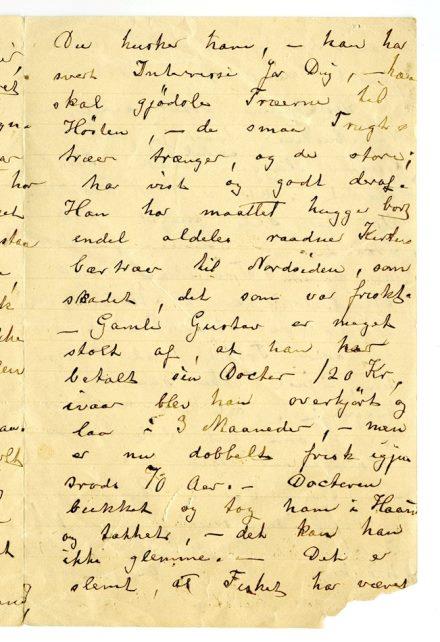 Du husker ham, – han har
svært Interesse for Dig, – han
skal gjødsle Træerne til
Høsten, – de smaa Frugt=
træer trænger, og de store;
har vist og godt deraf.
Han har maattet hugge bort
endel aldeles raadne Kirse
bærtræer til Nordsiden, som
skadet, det som var friskt.
– Gamle Gustav er meget
stolt af, at han har
betalt sin Docter 120 Kr,
ivaar blev han overkjørt og
laa i 3 Maaneder, – men
er nu dobbelt frisk igjen
trods 70 Aar. – Docteren
bukket og tog ham i Haan
og takket, – det kan han
ikke glemme. – Det er
slemt, at Fisket har været